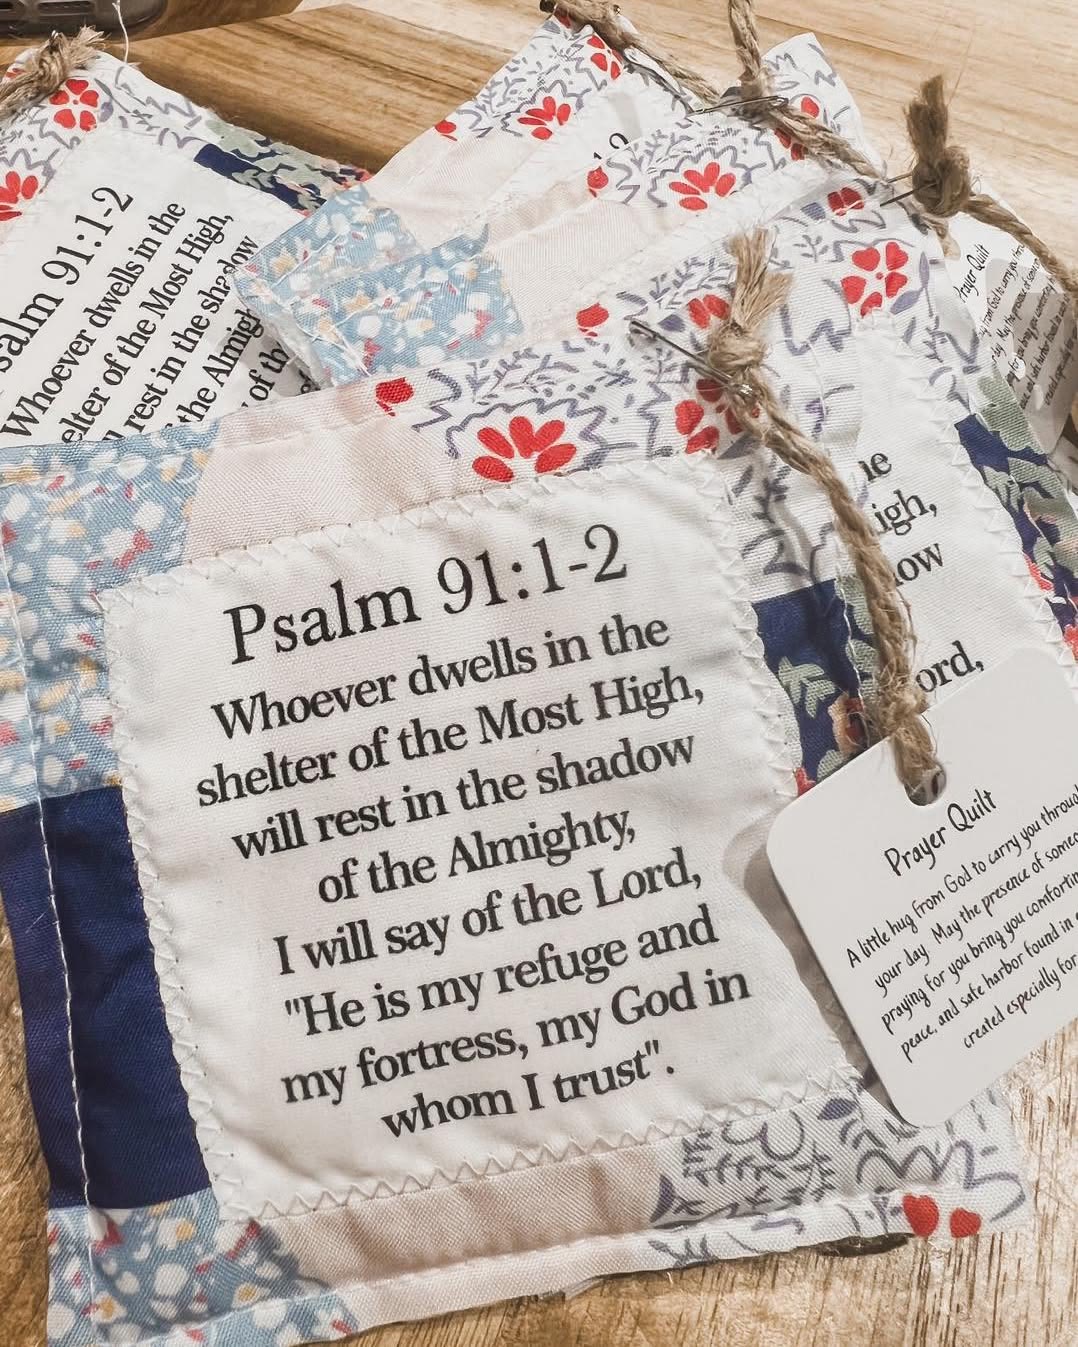 Psalm 91:1-2
Whoever dwells in the
shelter of the Most High,
will rest in the shadow
of the Almighty,
I will say of the Lord,
"He is my refuge and
my fortress, my God in
whom I trust".
Prayer Quilt
A little hug from God to carry you through
your day. May the presence of
praying for you bring you
peace, and safe harbor found in
created especially for
91:1-2
Whoever dwells in the
of the Most High,
rest in the shadow
the
of
Prayer Quilt